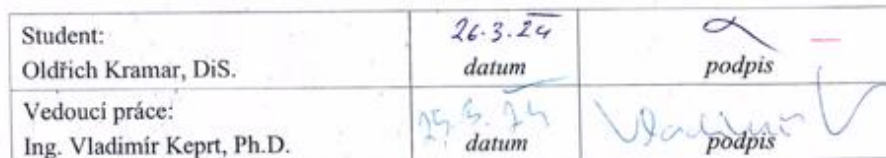 Student:
26.3.24
Oldřich Kramar, DiS.
datum
podpis
Vedoucí práce:
Ing. Vladimír Keprt, Ph.D.
datum
podpis